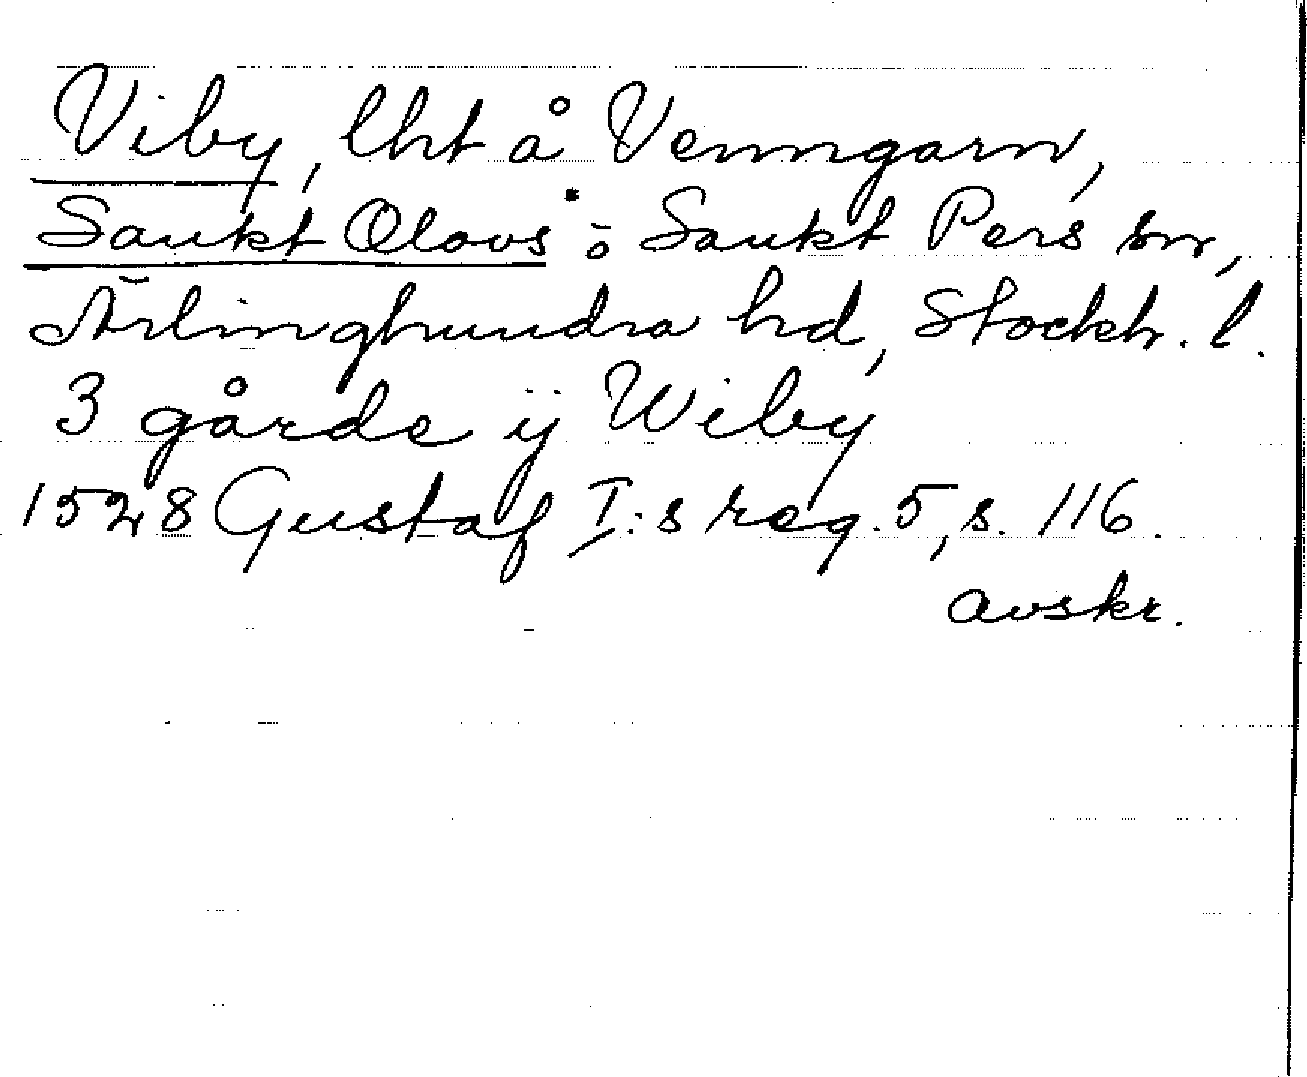 Viby, lht å Venngarn,
Sankt Olovs o Sankt Pers sn,
Ärlinghundra hd, Stockh. l.
3 gårde ÿ Wiby
1528 Gustaf I:s reg. 5, s. 116.
avskr.